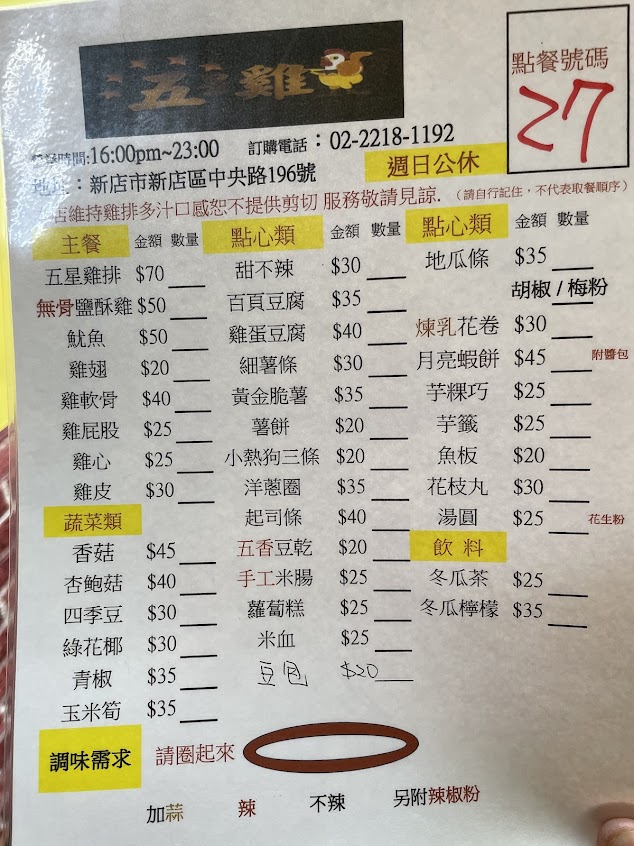 五 雞
點餐號碼
27
時間:16:00pm~23:00 訂購電話：02-2218-1192
週日公休
地址：新店市新店區中央路196號
(請自行記住，不代表取餐順序)
店維持雞排多汁口感恕不提供剪切 服務敬請見諒.
主餐 金額 數量
五星雞排 $70
無骨鹽酥雞 $50
魷魚 $50
雞翅 $20
雞軟骨 $40
雞屁股 $25
雞心 $25
雞皮 $30
蔬菜類
香菇 $45
杏鮑菇 $40
四季豆 $30
綠花椰 $30
青椒 $35
玉米筍 $35
點心類 金額 數量
甜不辣 $30
百頁豆腐 $35
雞蛋豆腐 $40
細薯條 $30
黃金脆薯 $35
薯餅 $20
小熱狗三條 $20
洋蔥圈 $35
起司條 $40
五香豆乾 $20
手工米腸 $25
蘿蔔糕 $25
米血 $25
豆包 $20
點心類 金額 數量
地瓜條 $35
胡椒 / 梅粉
煉乳花卷 $30
月亮蝦餅 $45 附醬包
芋粿巧 $25
芋籤 $25
魚板 $20
花枝丸 $30
湯圓 $25 花生粉
飲 料
冬瓜茶 $25
冬瓜檸檬 $35
調味需求 請圈起來
加蒜 辣 不辣 另附辣椒粉